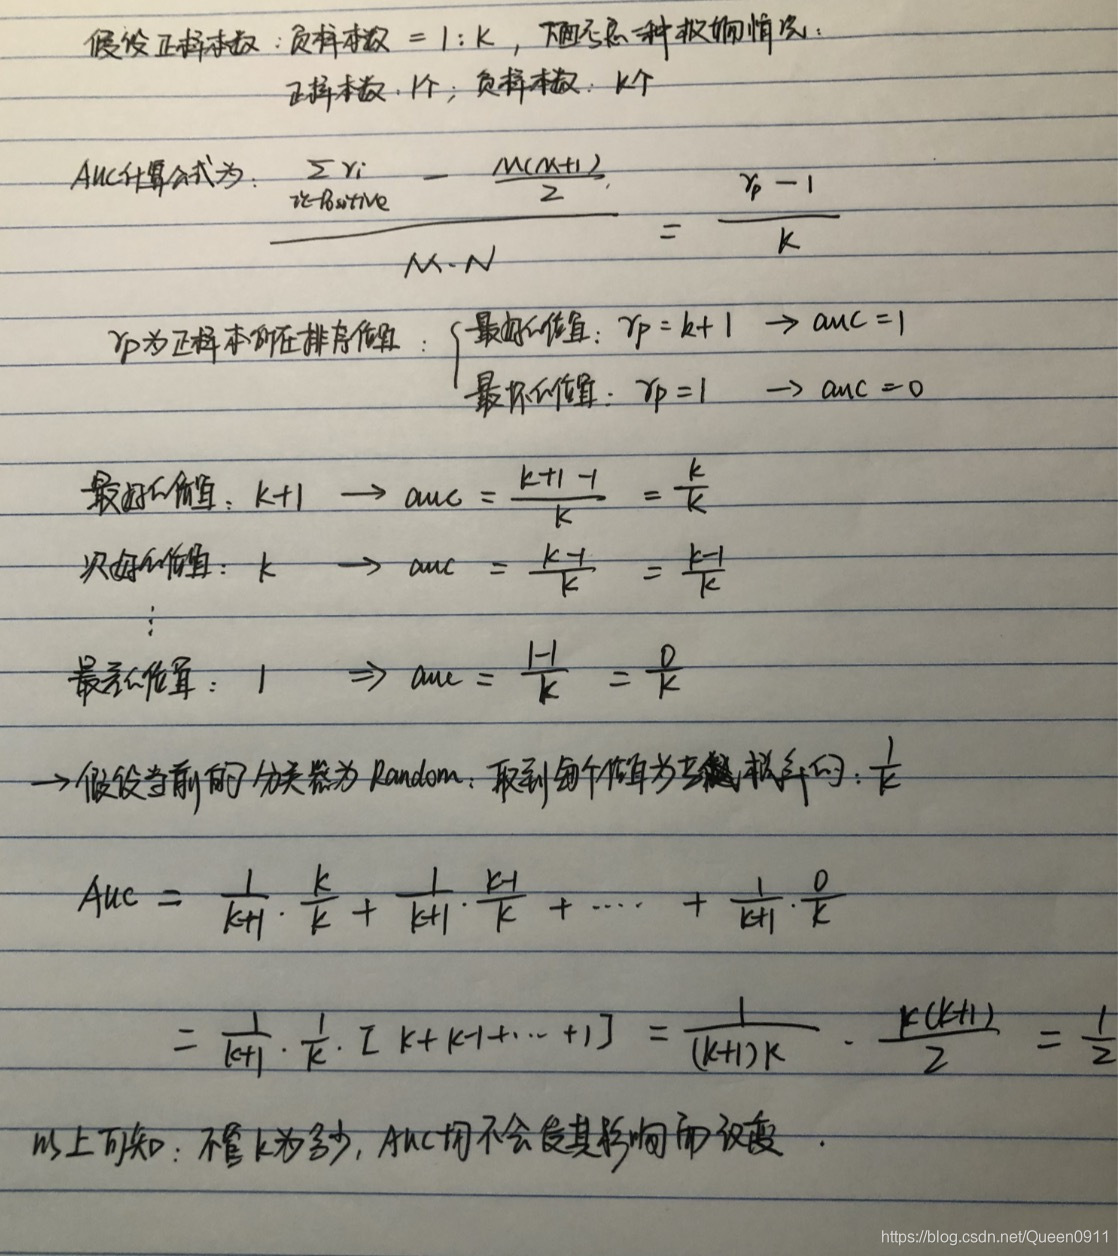 假设正样本数：负样本数 = 1：K，下面考虑一种极端情况：
正样本数：1个；负样本数：K个
AUC计算公式为：
∑ri - M(M+1)/2
i∈Positive
M·N
= (rp - 1)/k
rp为正样本所在排序位置：
最好的位置：rp = k+1 → auc = 1
最坏的位置：rp = 1 → auc = 0
最好的位置：k+1 → auc = (k+1-1)/k = k/k
次好的位置：k → auc = (k-1)/k = (k-1)/k
⋮
最差的位置：1 ⇒ auc = (1-1)/k = 0/k
→假设当前的分类器为Random：取到每个位置为 概率的：1/k
AUC = 1/(k+1) · k/k + 1/(k+1) · (k-1)/k + ···· + 1/(k+1) · 0/k
= 1/(k+1) · 1/k · [k+k-1+···+1] = 1/((k+1)k) · k(k+1)/2 = 1/2
以上可知：不管k为多少，AUC均不会受其影响而改变．
https://blog.csdn.net/Queen0911